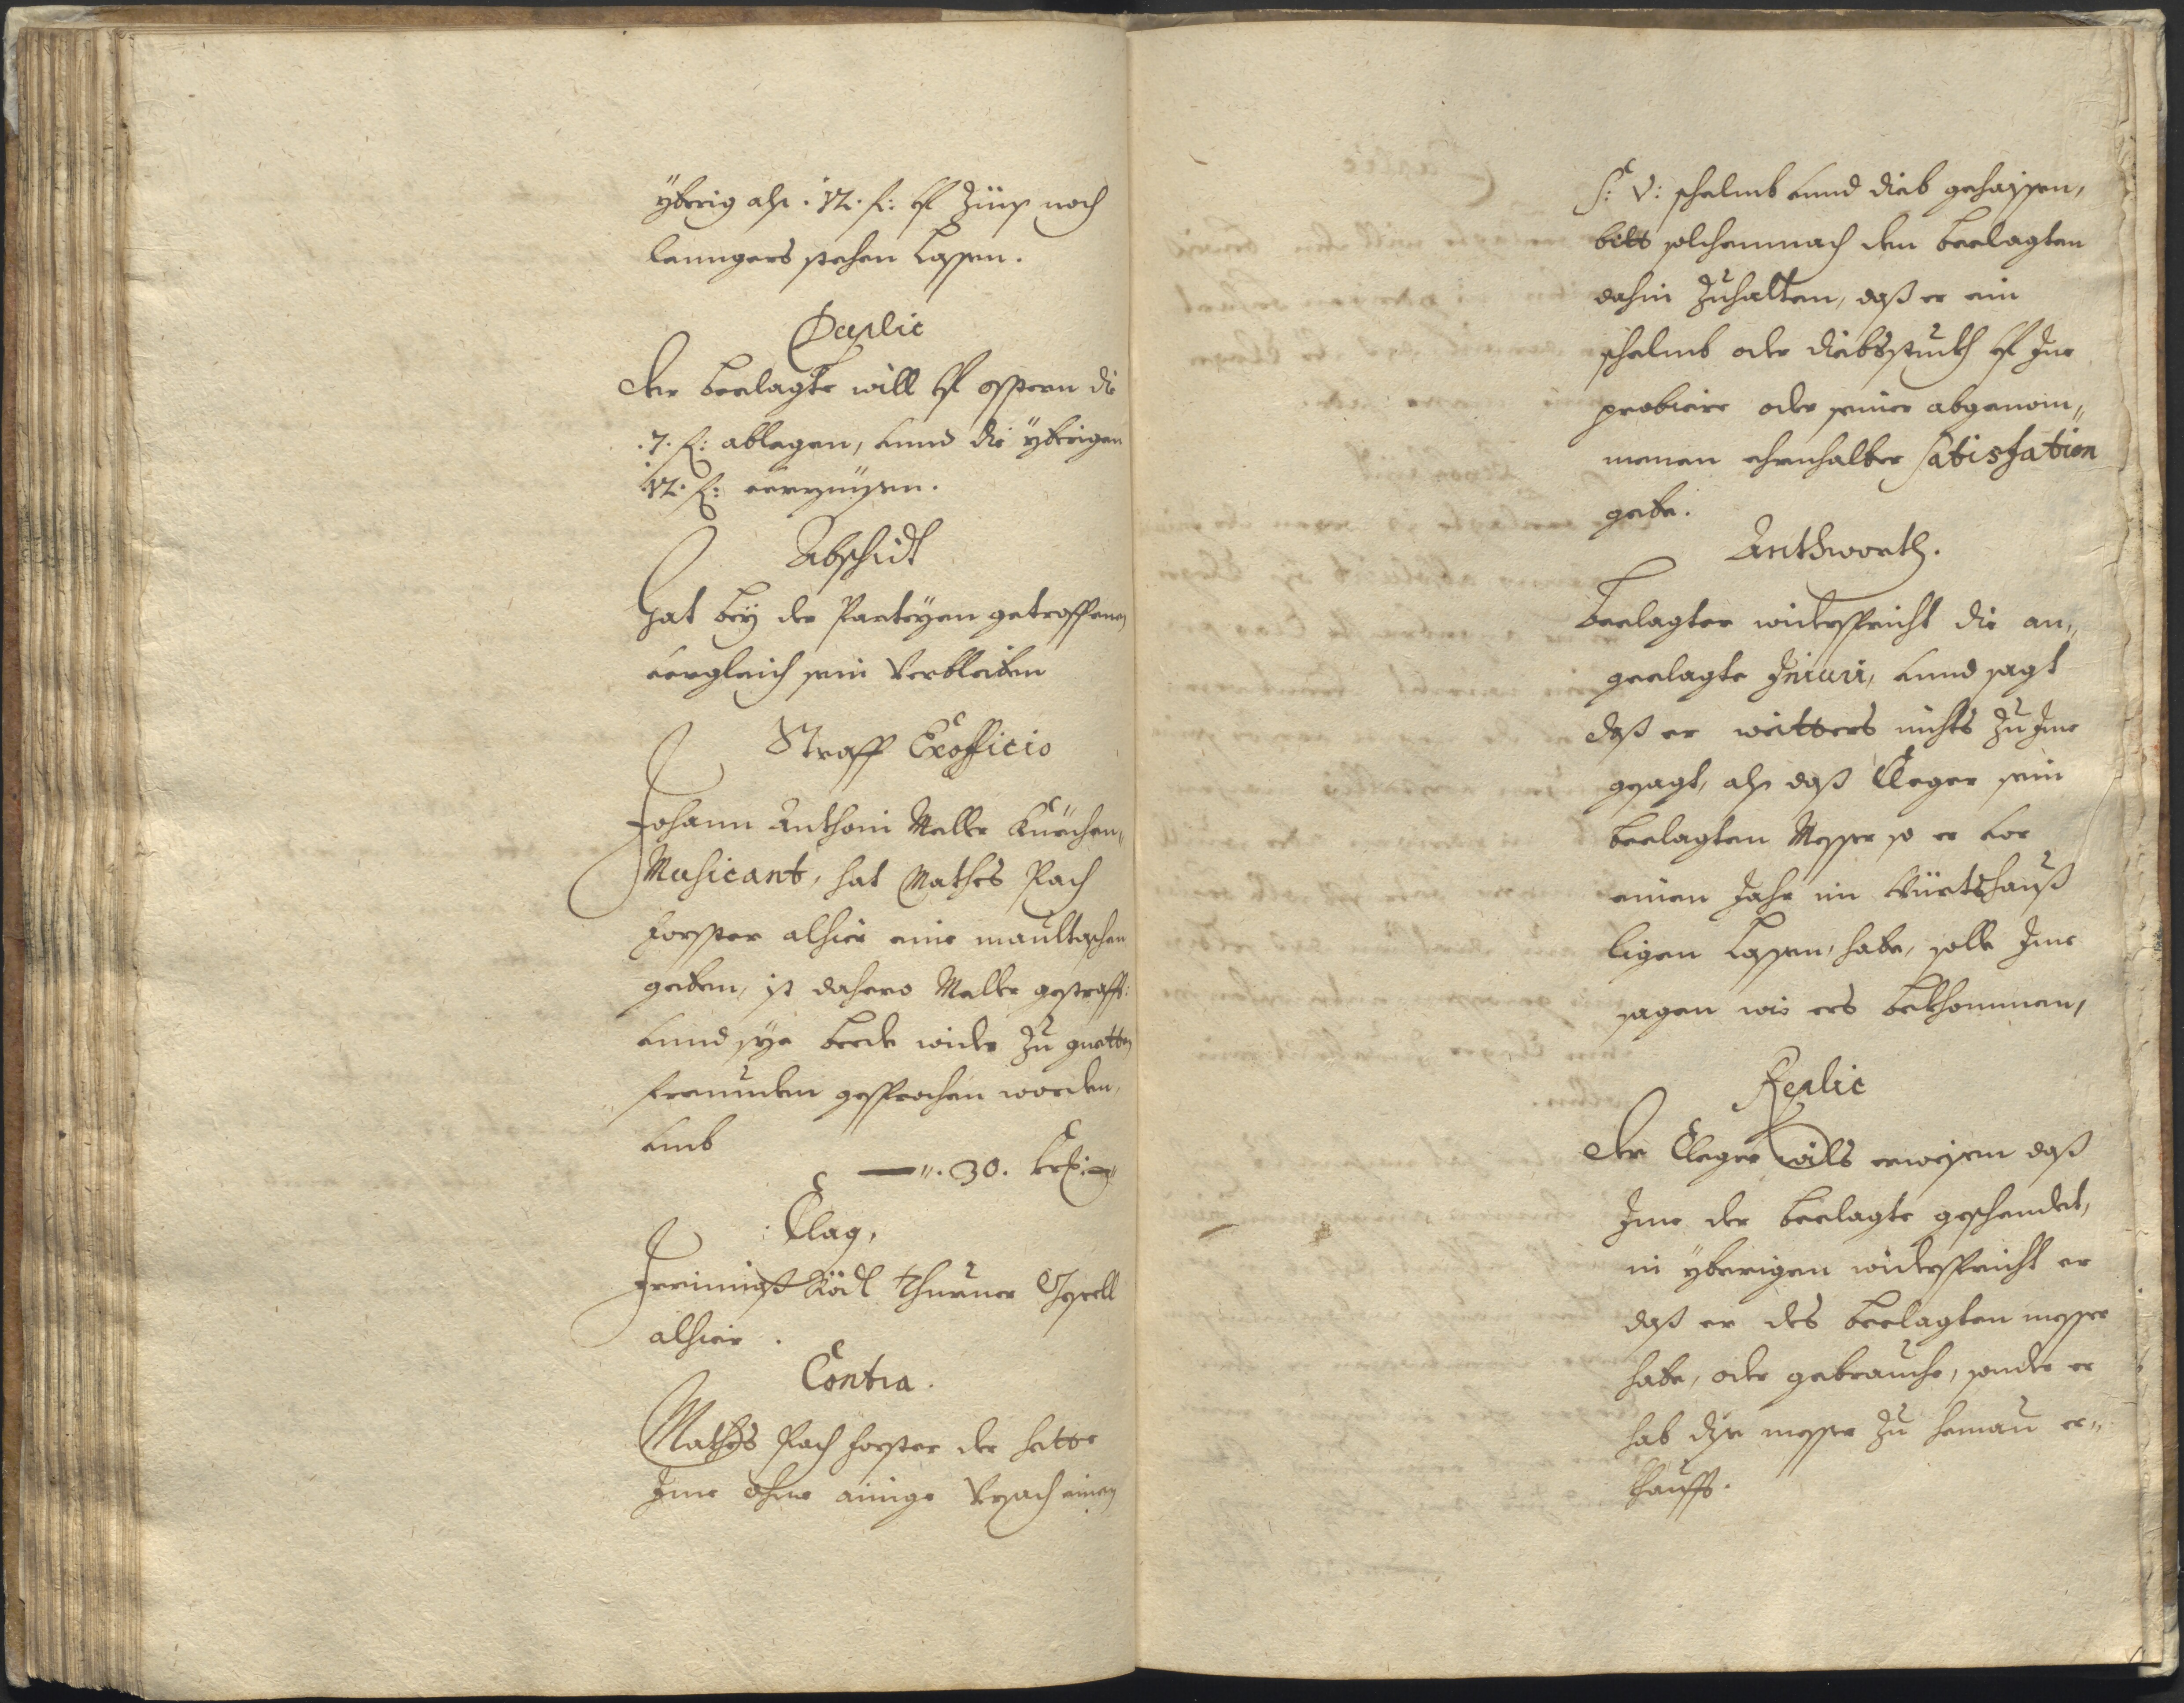 ÿberig als .12. fl: uf Zünß noch
lenngers stehen Lassen.
Duplic
Der beclagte will uf Osstern die
.7. fl: ablegen, unnd die ÿberigen
.12. fl: verzünsen.
Abschidt
Hat beÿ der Partheÿen getroffenen
vergleich sein Verbleiben
Straff Exofficio
Johann Anthoni Küerchen„
Musicant, hat Mathes Pach
Forster alhier eine maultaschen
geben, ist dahero gestrafft:
unnd sÿe beede wider zu guetten
freunden gesprochen worden,
umb
—„. 30. kr:
Clag,
Thurner Gesell
alhier.
Contra.
Mathes Pach Forster der hette
Ime ohne ainige Ursach einen
S: V: schelmb unnd dieb gehaissen,
bitt solchemnach den beclagten
dahin zuhalten, daß er ein
schelmb oder diebsstuckh uf Ine
probiere oder seiner abgenom„
menen ehrnhalber Satisfation
gebe.
Anthworth.
Beclagter widerspricht die an„
geclagte Iniuri, unnd sagt
daß er weitters nichts zu Ime
gesagt, als daß Cleger sein
beclagten Messer so er vor
einem Jahr im Würtshauß
ligen Lassen, habe, solle Ime
sagen wie ers bekhommen,
Replic
Der Cleger wills erweisen daß
Ime der beclagte geschendet,
in ÿberigen widerspricht er
daß er des beclagten messer
habe, oder gebrauche, sonder er
hab diss messer zu Hemau er„
khaufft.